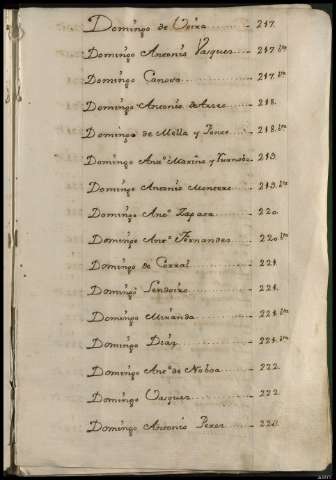 Domingo de Voira 217.
Domingo Antonio Vasques 217. bta
Domingo Canova 217. bta
Domingo Antonio de 218.
Domingo de Mella y Ponce 218. bta
Domingo Anto Mariño y 219.
Domingo Antonio Montero 219. bta
Domingo Anto Zapata 220.
Domingo Anto Fernandes 220. bta
Domingo de Corral 221.
Domingo Sendoiro 221.
Domingo Miranda 221. bta
Domingo Diaz 221. bta
Domingo Anto de Noboa 222.
Domingo Vasques 222.
Domingo Antonio Perez 222.